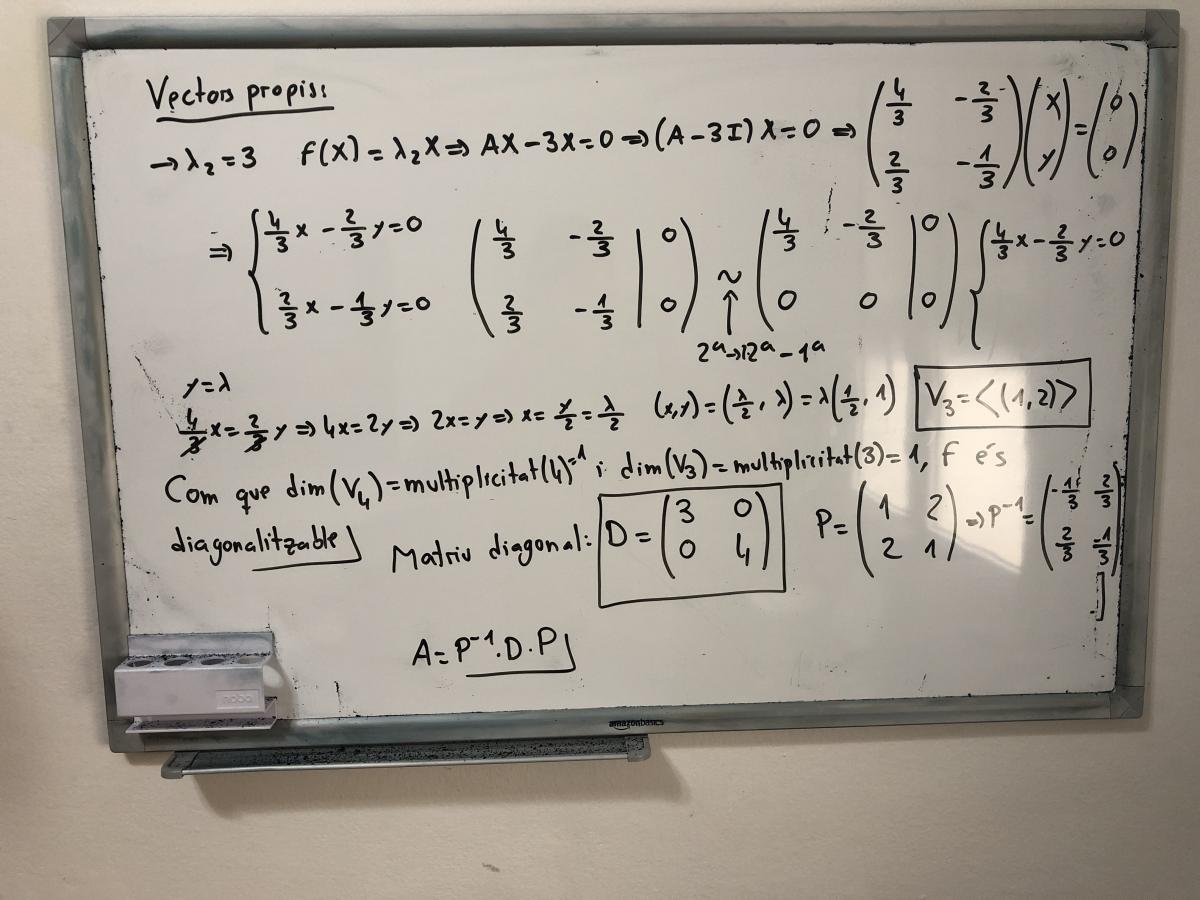 Vectors propis:
→ λ₂ = 3 f(X) = λ₂X ⇒ AX − 3X = 0 ⇒ (A − 3I) X = 0 ⇒ (4/3 −2/3; 2/3 −1/3)(x; y) = (0; 0)
⇒ { 4/3 x − 2/3 y = 0; 2/3 x − 1/3 y = 0 (4/3 −2/3 | 0; 2/3 −1/3 | 0) ~ (4/3 −2/3 | 0; 0 0 | 0) { 4/3 x − 2/3 y = 0
↑
2ª → 2ª − 1ª
y = λ
4/3 x = 2/3 y ⇒ 4x = 2y ⇒ 2x = y ⇒ x = y/2 = λ/2 (x,y) = (λ/2, λ) = λ(1/2, 1) V₃ = <(1,2)>
Com que dim(V₄) = multiplicitat(4) = 1 i dim(V₃) = multiplicitat(3) = 1, f és
diagonalitzable Matriu diagonal: D = (3 0; 0 4) P = (1 2; 2 1) ⇒ P⁻¹ = (−1/3 2/3; 2/3 −1/3)
A = P⁻¹ · D · P
nobo
amazonbasics